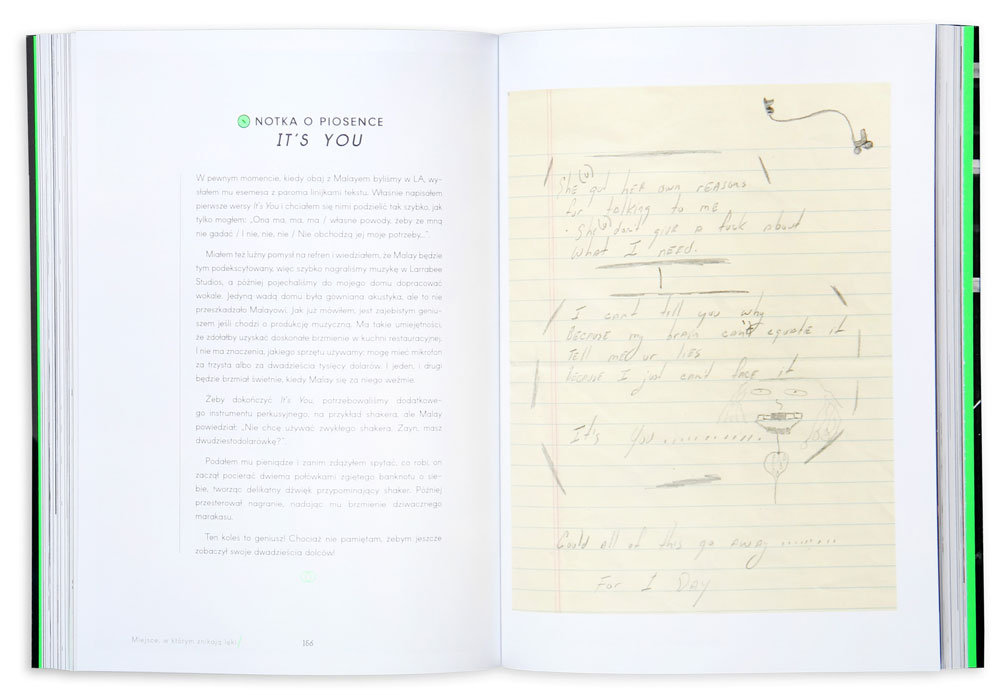 NOTKA O PIOSENCE
IT'S YOU
W pewnym momencie, kiedy obaj z Malayem byliśmy w LA, wy-
słałem mu esemesa z paroma linijkami tekstu. Właśnie napisałem
pierwsze wersy It's You i chciałem się nimi podzielić tak szybko, jak
tylko mogłem: „Ona ma, ma, ma / własne powody, żeby ze mną
nie gadać / I nie, nie, nie / Nie obchodzą jej moje potrzeby...".
Miałem też luźny pomysł na refren i wiedziałem, że Malay będzie
tym podekscytowany, więc szybko nagraliśmy muzykę w Larrabee
Studios, a później pojechaliśmy do mojego domu dopracować
wokale. Jedyną wadą domu była gówniana akustyka, ale to nie
przeszkadzało Malayowi. Jak już mówiłem, jest zajebistym geniu-
szem jeśli chodzi o produkcję muzyczną. Ma takie umiejętności,
że zdołałby uzyskać doskonałe brzmienie w kuchni restauracyjnej.
I nie ma znaczenia, jakiego sprzętu używamy: mogę mieć mikrofon
za trzysta albo za dwadzieścia tysięcy dolarów. I jeden, i drugi
będzie brzmiał świetnie, kiedy Malay się za niego weźmie.
Żeby dokończyć It's You, potrzebowaliśmy dodatkowe-
go instrumentu perkusyjnego, na przykład shakera, ale Malay
powiedział: „Nie chcę używać zwykłego shakera. Zayn, masz
dwudziestodolarówkę?".
Podałem mu pieniądze i zanim zdążyłem spytać, co robi, on
zaczął pocierać dwiema połówkami zgiętego banknotu o sie-
bie, tworząc delikatny dźwięk przypominający shaker. Później
przesterował nagranie, nadając mu brzmienie dziwacznego
marakasu.
Ten koleś to geniusz! Chociaż nie pamiętam, żebym jeszcze
zobaczył swoje dwadzieścia dolców!
Miejsce, w którym znikają lęki/
166
She got her own reasons
for talking to me
She don't give a fuck about
what I need.
I cant tell you why
Because my brain cant equate it
Tell me ur lies
because I just cant face it
It's you..............
Could all of this go away.........
For 1 Day